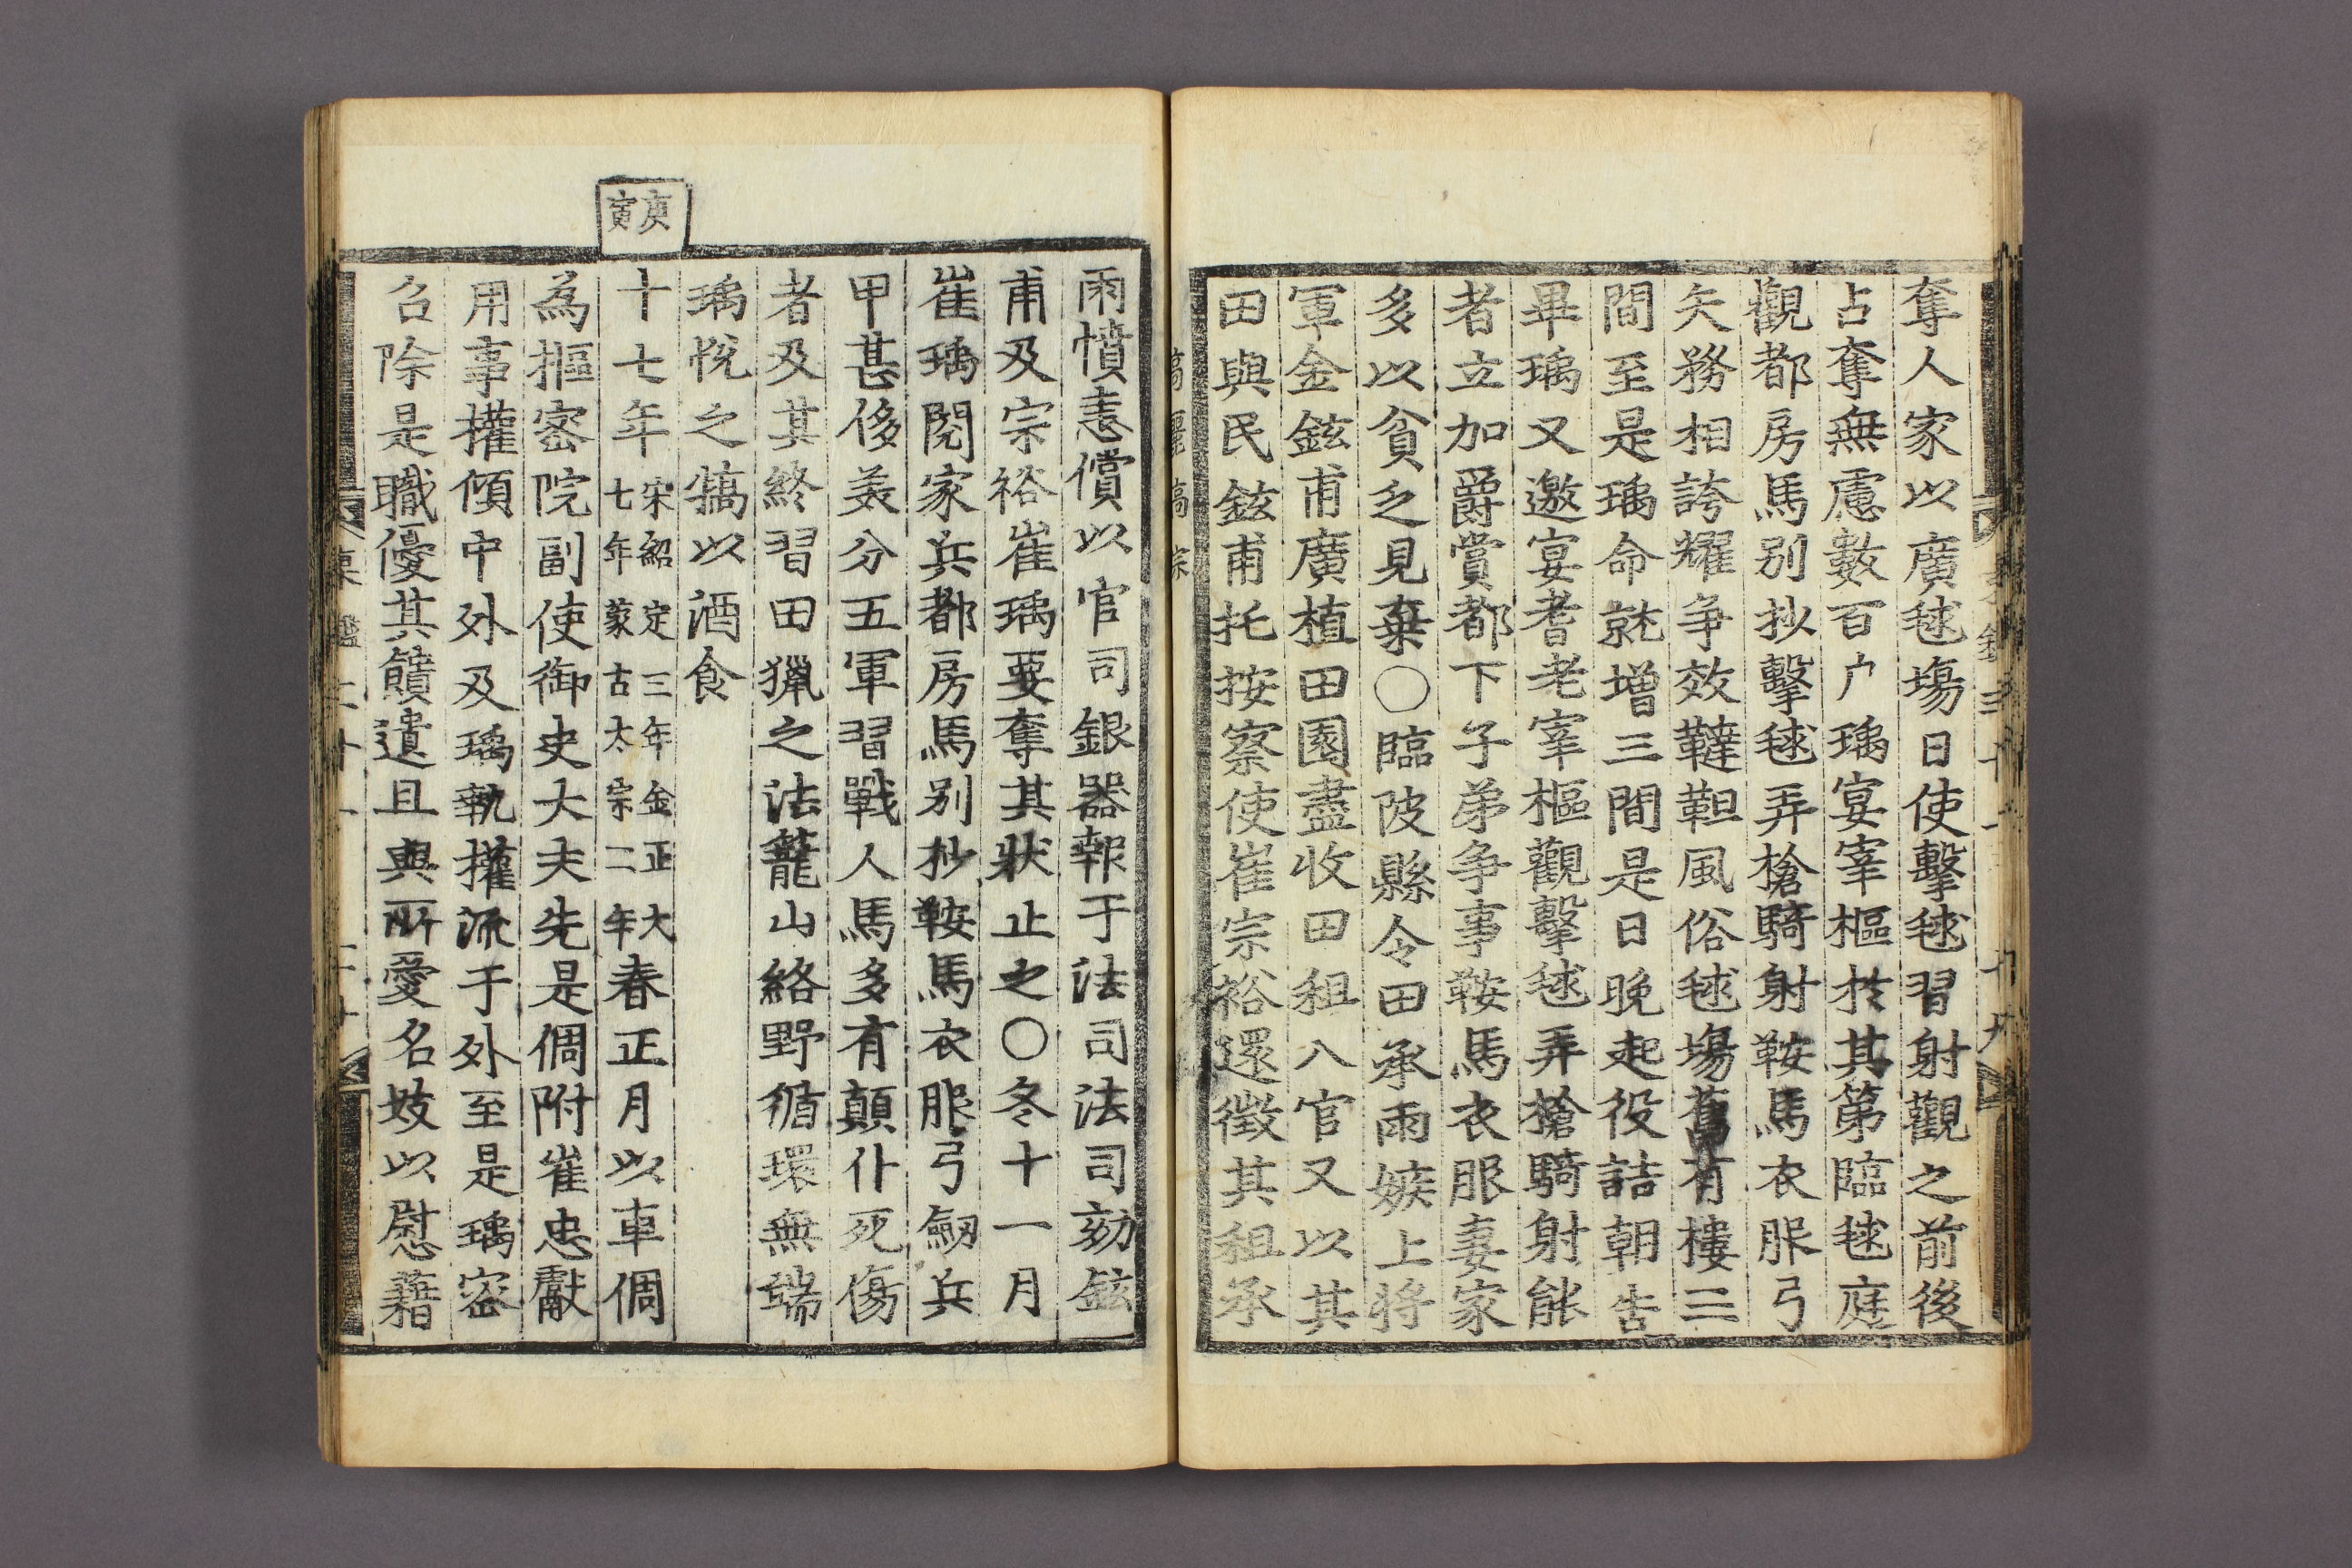 奪人家以廣毬場日使擊毬習射觀之前後
占奪無慮數百户瑀宴宰樞於其第臨毬庭
觀都房馬别抄擊毬弄槍騎射鞍馬衣服弓
矢務相誇耀争效韃靼風俗毬場舊有樓三
間至是瑀命就增三間是日晚起役詰朝告
畢瑀又邀宴耆老宰樞觀擊毬弄槍騎射能
者立加爵賞都下子弟争事鞍馬衣服妻家
多以貧乏見棄○臨陂縣令田承雨嫉上将
軍金鉉甫廣植田園盡收田租八官又以其
田與民鉉甫托按察使崔宗裕還徵其租承
雨憤恚償以官司銀器報于法司法司劾鉉
甫及宗裕崔瑀要奪其狀止之○冬十一月
崔瑀閱家兵都房馬别抄鞍馬衣服弓劒兵
甲甚侈美分五軍習戰人馬多有顛仆死傷
者及其終習田獵之法籠山絡野循環無端
瑀悅之犒以酒食
庚寅
十七年宋紹定三年金正大七年蒙古太宗二年春正月以車倜
為樞密院副使御史大夫先是倜附崔忠獻
用事權傾中外及瑀執權流于外至是瑀密
召除是職優其饋遺且與所愛名妓以慰藉